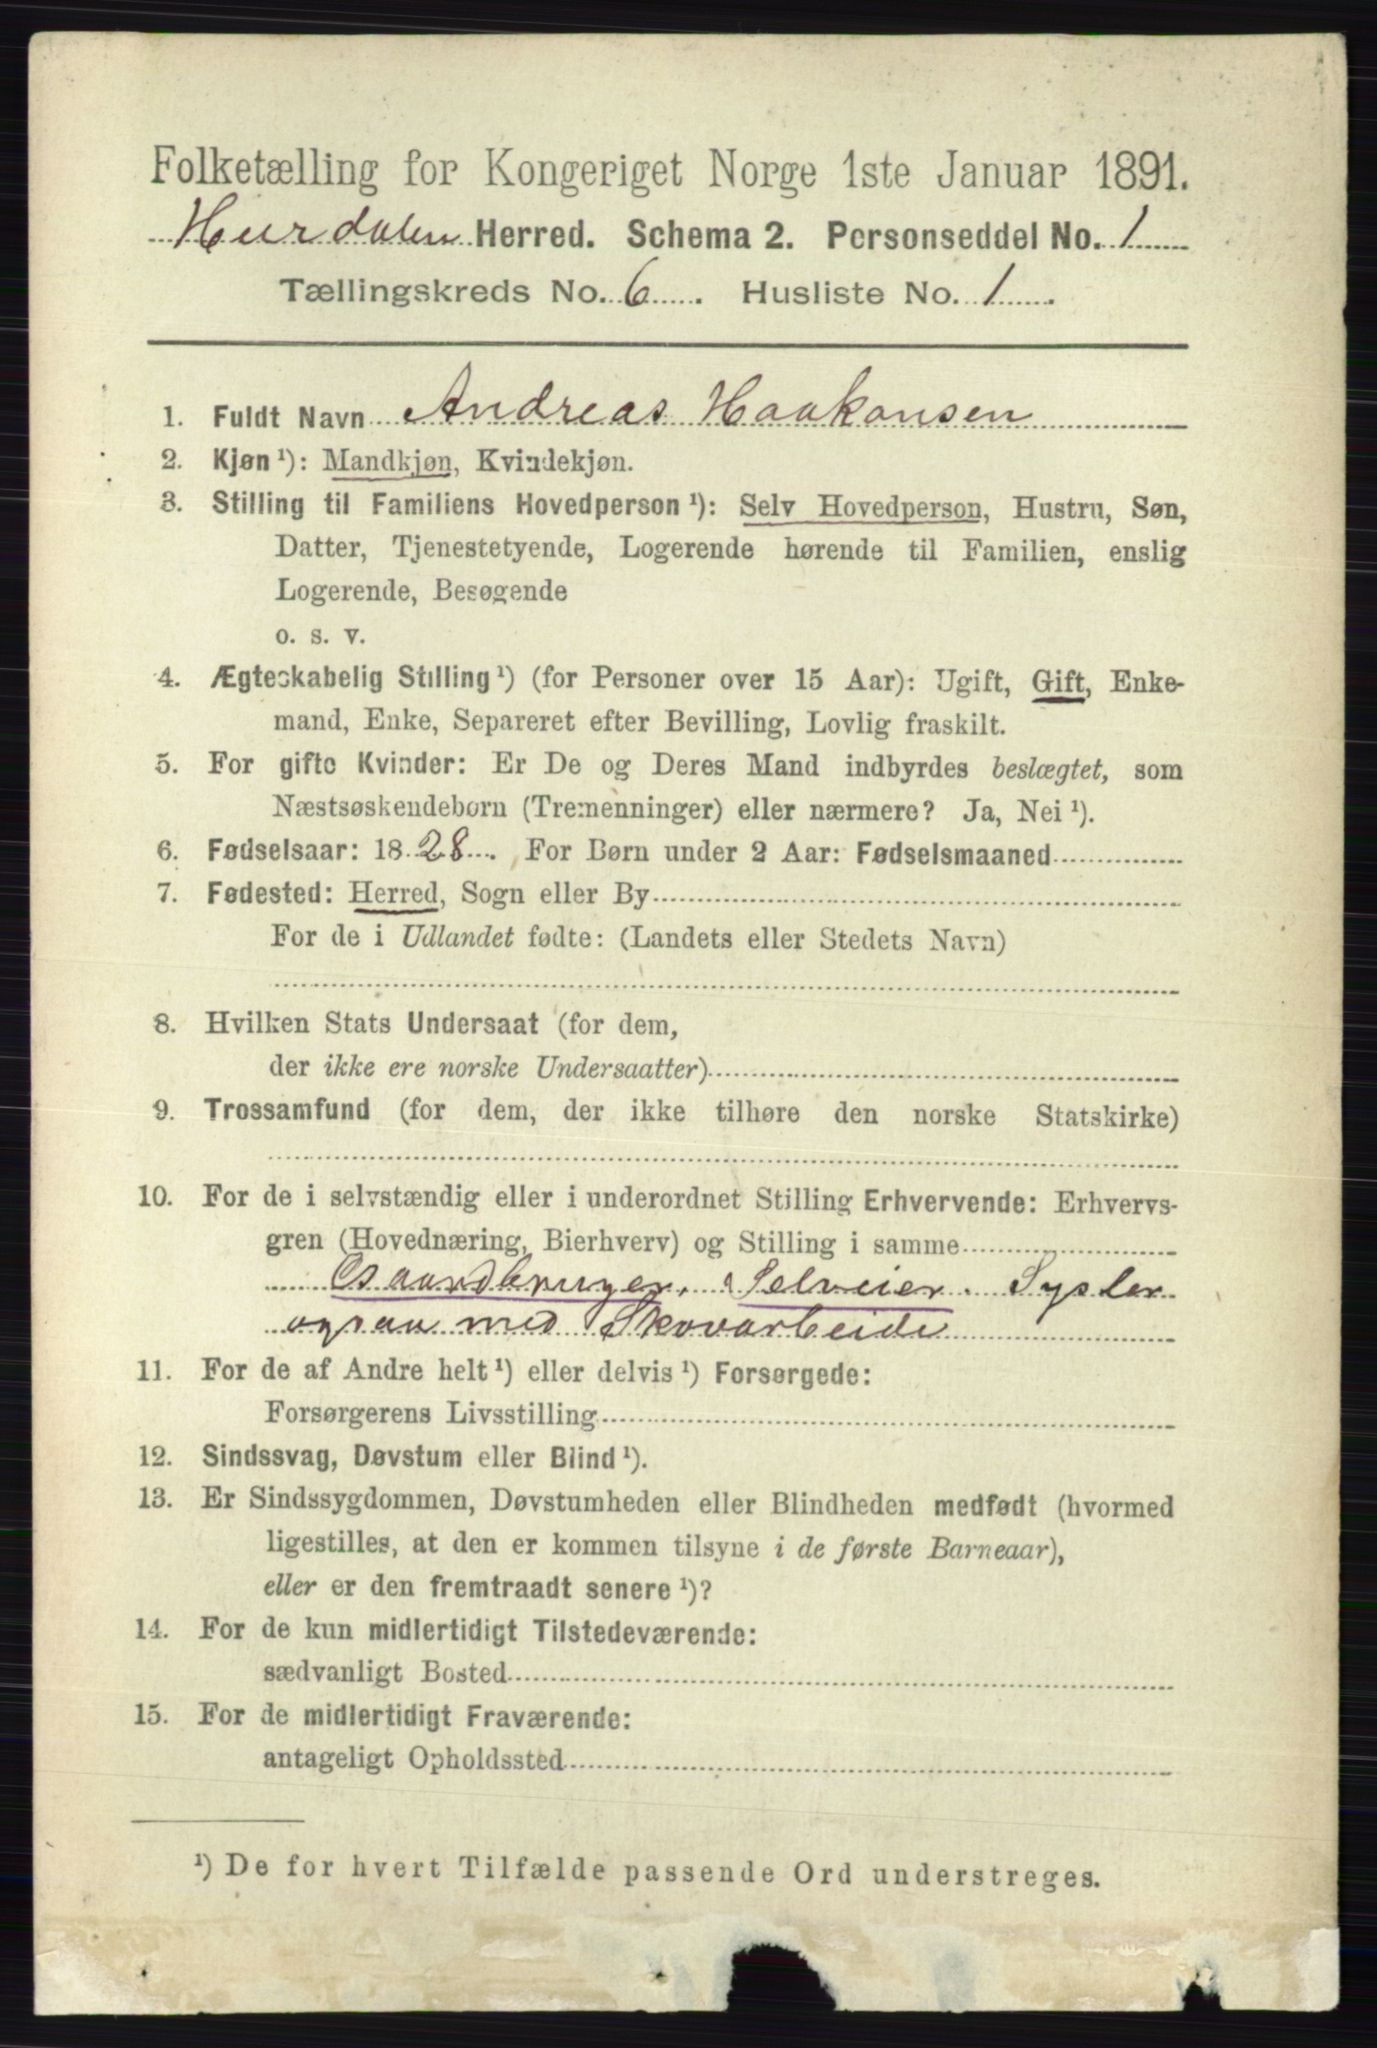 Folketælling for Kongeriget Norge 1ste Januar 1891.
Hurdalen Herred. Schema 2. Personseddel No. 1
Tællingskreds No. 6. Husliste No. 1.
1. Fuldt Navn Andreas Haakonsen
2. Kjøn ¹): Mandkjøn, Kvindekjøn.
3. Stilling til Familiens Hovedperson ¹): Selv Hovedperson, Hustru, Søn,
Datter, Tjenestetyende, Logerende hørende til Familien, enslig
Logerende, Besøgende
o. s. v.
4. Ægteskabelig Stilling ¹) (for Personer over 15 Aar): Ugift, Gift, Enke-
mand, Enke, Separeret efter Bevilling, Lovlig fraskilt.
5. For gifte Kvinder: Er De og Deres Mand indbyrdes beslægtet, som
Næstsøskendeborn (Tremenninger) eller nærmere? Ja, Nei ¹).
6. Fødselsaar: 1828. For Børn under 2 Aar: Fødselsmaaned
7. Fødested: Herred, Sogn eller By
For de i Udlandet fødte: (Landets eller Stedets Navn)
8. Hvilken Stats Undersaat (for dem,
der ikke ere norske Undersaatter)
9. Trossamfund (for dem, der ikke tilhøre den norske Statskirke)
10. For de i selvstændig eller i underordnet Stilling Erhvervende: Erhvervs-
gren (Hovednæring, Bierhverv) og Stilling i samme
Gaardbruger, Selveier. Sysler
ogsaa med Skovarbeide
11. For de af Andre helt ¹) eller delvis ¹) Forsørgede:
Forsørgerens Livsstilling
12. Sindssvag, Døvstum eller Blind ¹).
13. Er Sindssygdommen, Døvstumheden eller Blindheden medfødt (hvormed
ligestilles, at den er kommen tilsyne i de første Barneaar),
eller er den fremtraadt senere ¹)?
14. For de kun midlertidigt Tilstedeværende:
sædvanligt Bosted
15. For de midlertidigt Fraværende:
antageligt Opholdssted
¹) De for hvert Tilfælde passende Ord understreges.